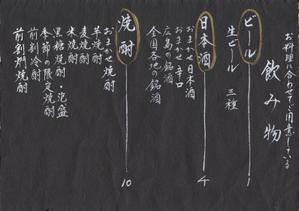 お料理に合わせてご用意している
飲み物
ビール 1
生ビール 三種
日本酒 4
おまかせ日本酒
おまかせ辛口
広島の銘酒
全国各地の銘酒
焼酎 10
おまかせ焼酎
芋焼酎
麦焼酎
米焼酎
黒糖焼酎・泡盛
季節の限定焼酎
前割冷酎
前割燗焼酎